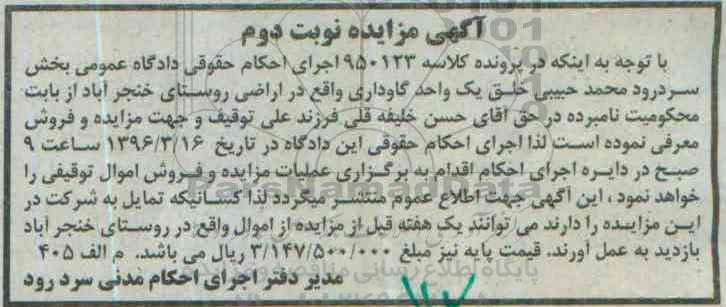 آگهی مزایده نوبت دوم
با توجه به اینکه در پرونده کلاسه ۹۵۰۱۲۳ اجرای احکام حقوقی دادگاه عمومی بخش
سردرود محمد حبیبی خلق یک واحد گاوداری واقع در اراضی روستای خنجر آباد از بابت
محکومیت نامبرده در حق آقای حسن خلیفه قلی فرزند علی توقیف و جهت مزایده و فروش
معرفی نموده است لذا اجرای احکام حقوقی این دادگاه در تاریخ ۱۳۹۶/۳/۱۶ ساعت ۹
صبح در دایره اجرای احکام اقدام به برگزاری عملیات مزایده و فروش اموال توقیفی را
خواهد نمود ، این آگهی جهت اطلاع عموم منتشر میگردد لذا کسانیکه تمایل به شرکت در
این مزایده را دارند می توانند یک هفته قبل از مزایده از اموال واقع در روستای خنجر آباد
بازدید به عمل آورند. قیمت پایه نیز مبلغ ۳/۱۴۷/۵۰۰/۰۰۰ ریال می باشد. م الف ۴۰۵
مدیر دفتر اجرای احکام مدنی سرد رود
ParsNamadData
پایگاه اطلاع رسانی مناقصه و مزایده